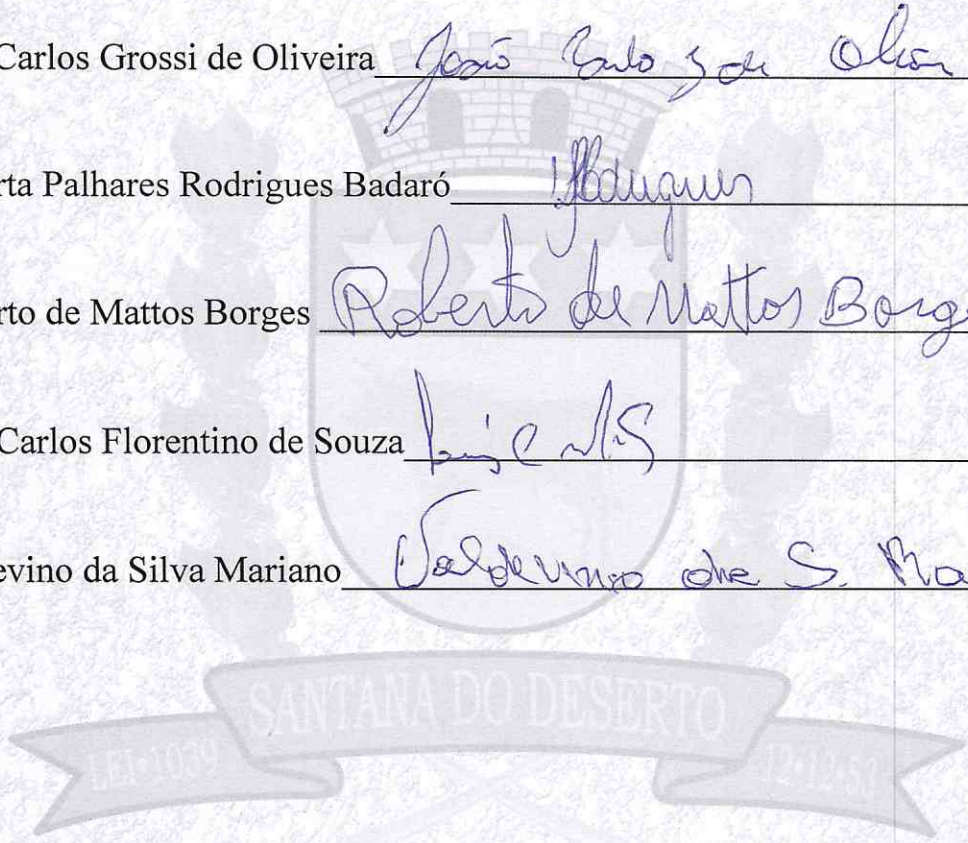 Carlos Grossi de Oliveira João
rta Palhares Rodrigues Badaró
rto de Mattos Borges Roberto de Mattos Borge
Carlos Florentino de Souza
evino da Silva Mariano Valdevino da S. Ma
SANTANA DO DESERTO
LEI:1039 12•12•53